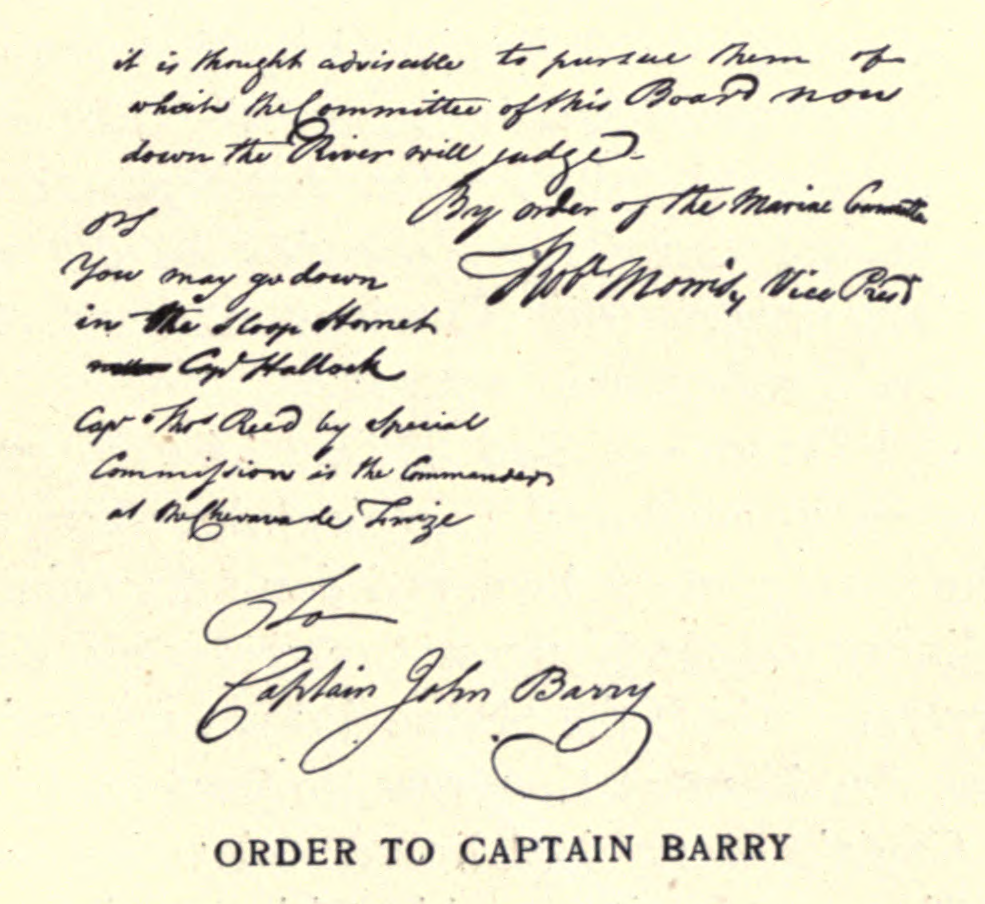 it is thought advisable to pursue them of
which the Committee of this Board now
down the River will judge.
By order of the Marine Committee
Robt Morris, Vice Presd
PS
You may go down
in the Sloop Hornet
Capt Hallock
Capt Thos Read by Special
Commission is the Commander
at the Chevaux de
To
Captain John Barry
ORDER TO CAPTAIN BARRY